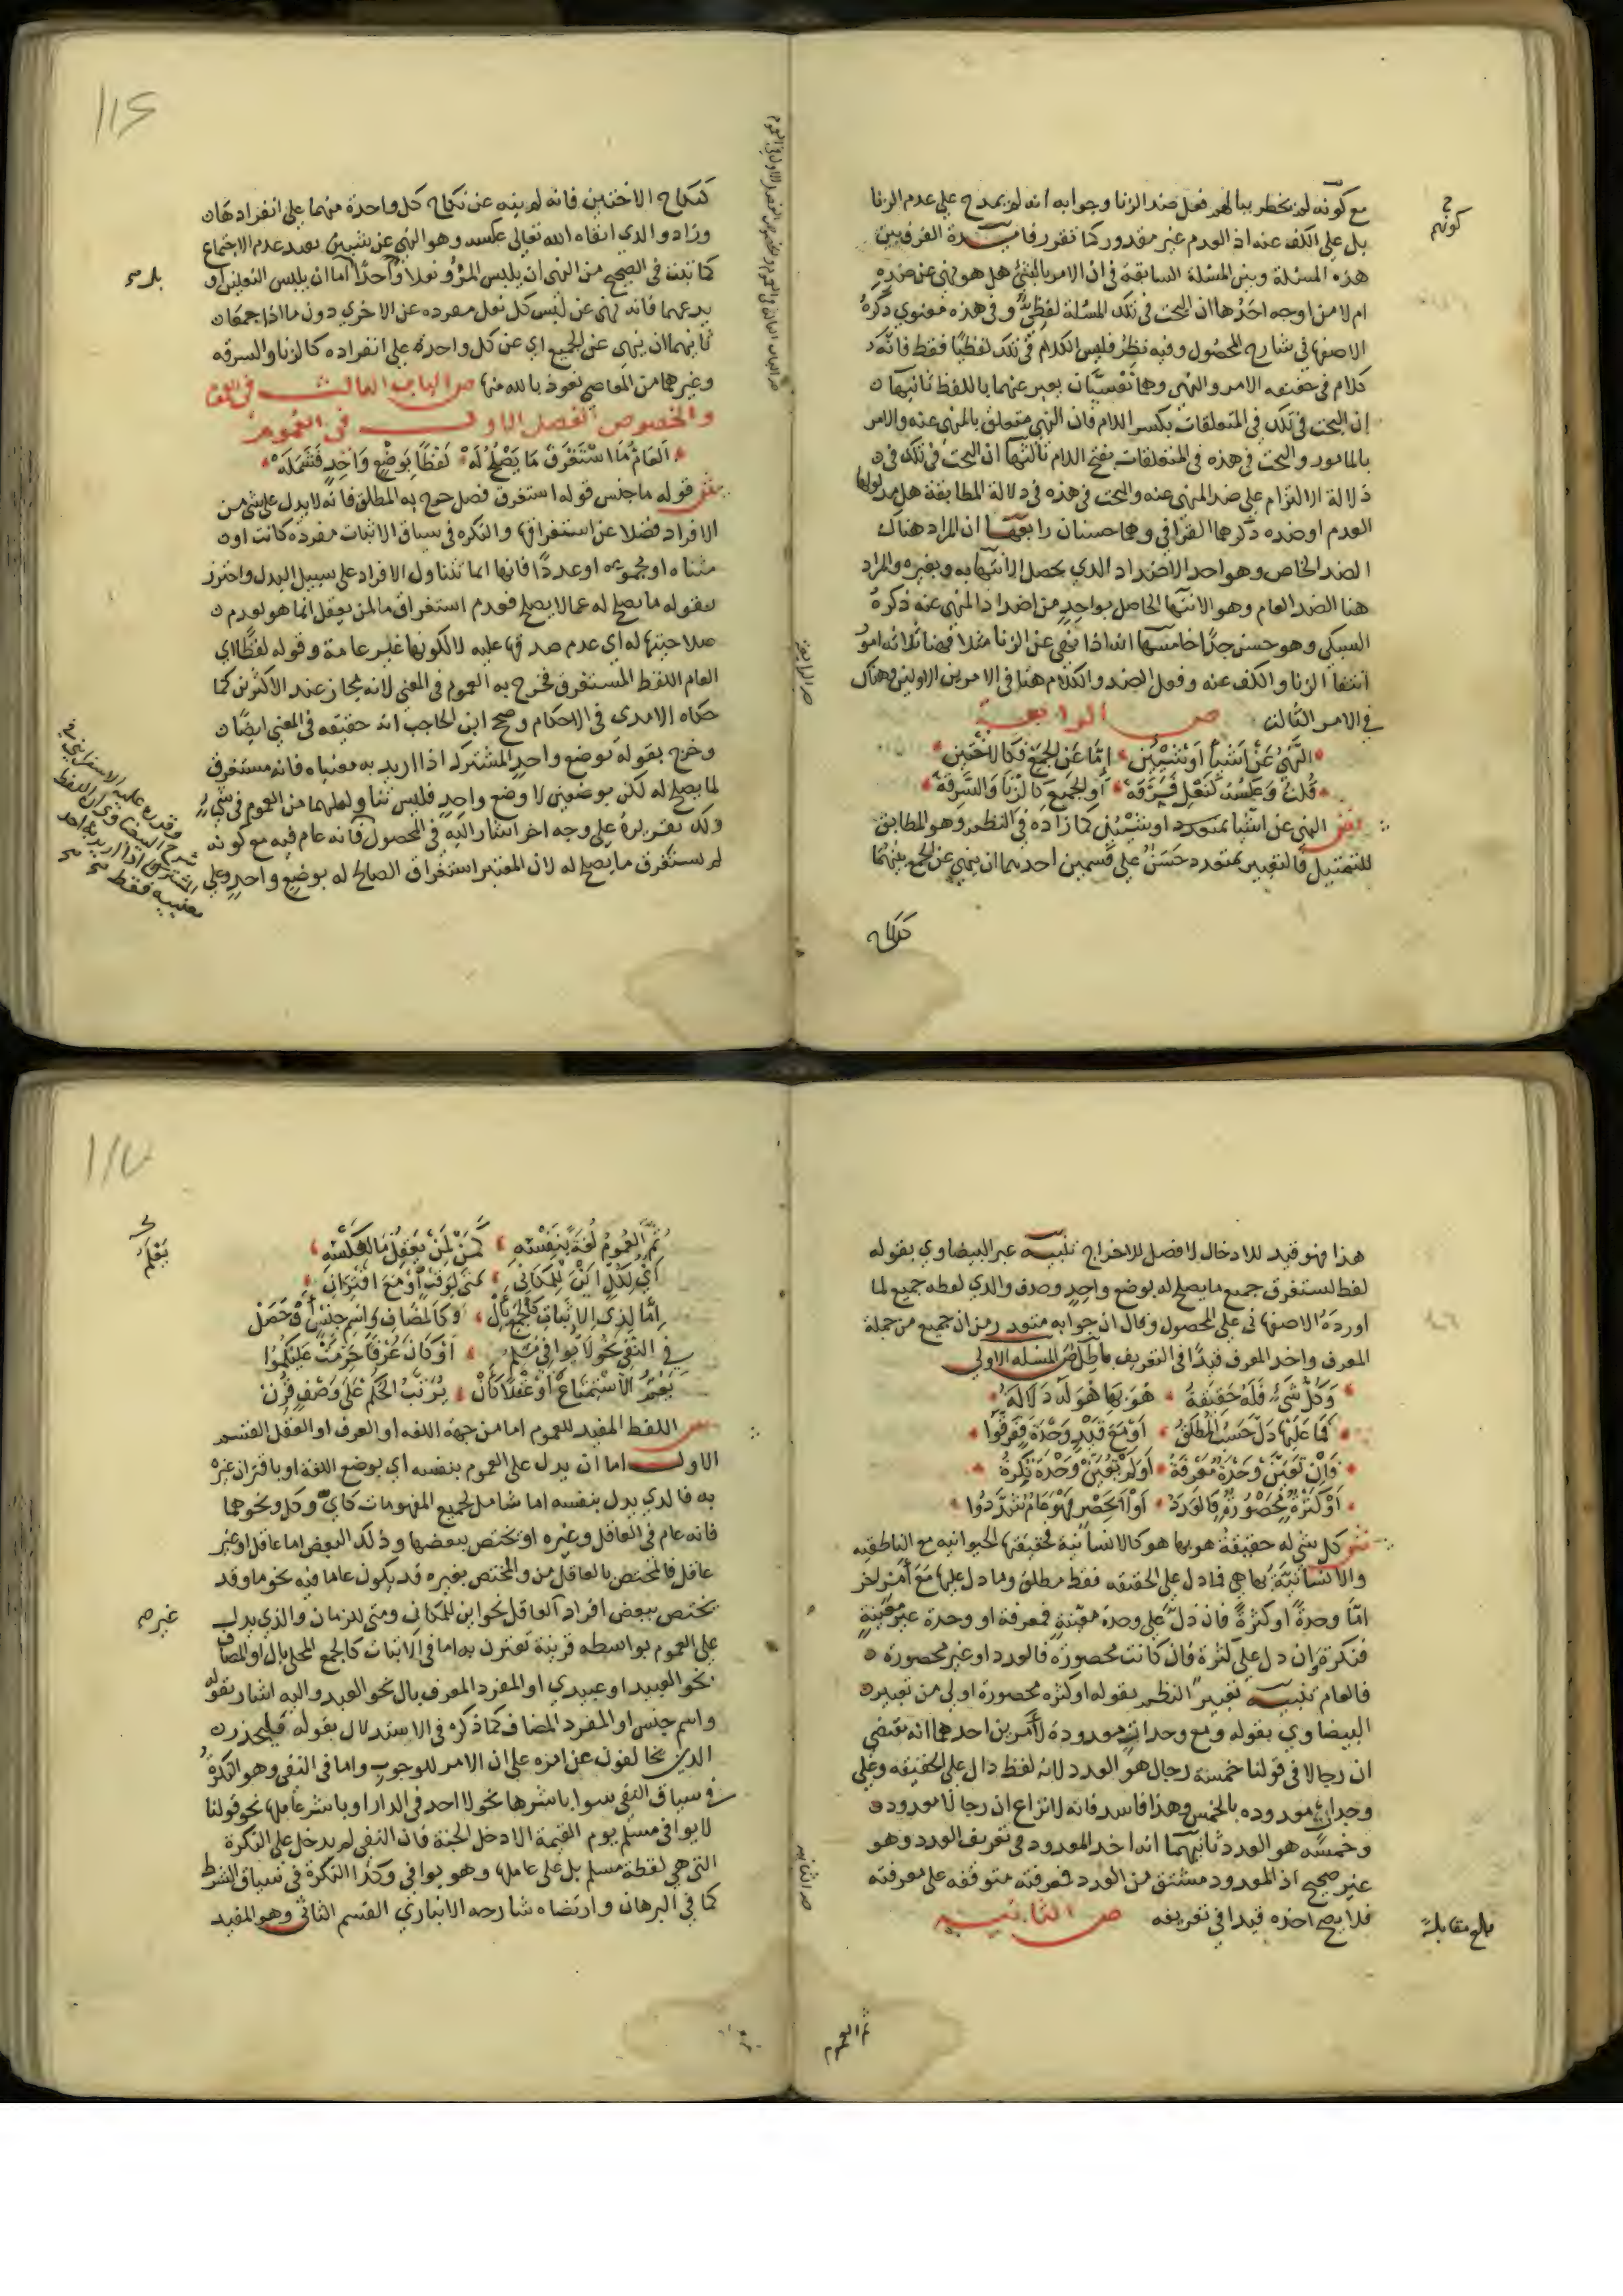 مع كونه لم يخطر ببالهم فعل ضد الزنا وجوابه انه لم يمدح على عدم الزنا
بل على الكف عنه اذ العدم غير مقدور كما تقرر فايدة الفرق بين
هذه المسئلة وبين المسئلة السابقة في ان الامر بالشئ هل هو نهي عن ضده
ام لا من اوجه احدها ان البحث في تلك المسئلة لفظي وفي هذه معنوي ذكره
الاصفهاني شارح المحصول وفيه نظر فليس الكلام في تلك لفظيا فقط فانه
كلام في حقيقة الامر والنهي وهما نفسيان يعبر عنهما باللفظ ثانيها
ان البحث في تلك في المتعلقات بكسر اللام فان النهي متعلق بالمنهي عنه والامر
بالمامور والبحث في هذه في المتعلقات بفتح اللام ثالثها ان البحث في تلك في
دلالة الالتزام على ضد المنهي عنه والبحث في هذه في دلالة المطابقة هل مدلولها
العدم او ضده ذكرهما القرافي وهما حسنان رابعها ان المراد هناك
الضد الخاص وهو احد الاضداد الذي يحصل الانتهاء به وبغيره والمراد
هنا الضد العام وهو الانتها الحاصل بواحد من اضداد المنهي عنه ذكره
السبكي وهو حسن جدا خامسها انه اذا نهي عن الزنا مثلا فهنا ثلاثة امور
انتفا الزنا والكف عنه وفعل الضد والكلام هنا في الامرين الاولين وهناك
في الامر الثالث ص الرابعة
النهي عن اشيا او شيئين اما عن الجمع فكالاختين
قلت وعكسه كنعل فرقه او الجميع كالزنا والسرقة
ش النهي عن اشيا متعدد او شيئين كما زاده في النظم وهو المطابق
للتمثيل فالتعبير بمتعدد حسن على قسمين احدهما ان ينهي عن الجمع بينهما
كنكاح
كنكاح الاختين فانه لم ينه عن نكاح كل واحدة منهما على انفرادها
وزاد والدي ابقاه الله تعالى عكسه وهو النهي عن شيئين بقيد عدم الاجتماع
كما ثبت في الصحيح من النهي ان يلبس المرؤ نعلا واحدا اما ان يلبس النعلين او
يدعهما فانه نهي عن لبس كل نعل مفرده عن الاخري دون ما اذا جمعا
ثانيهما ان ينهي عن الجميع اي عن كل واحدة على انفراده كالزنا والسرقة
وغيرهما من المعاصي نعوذ بالله منها ص الباب الثالث في العموم
والخصوص الفصل الاول في العموم
العام ما استغرق ما يصلح له لفظا بوضع واحد فتشمله
ش قوله ما جنس قوله استغرق فصل خرج به المطلق فانه لا يدل على شئ من
الافراد فضلا عن استغراقها والنكره في سياق الاثبات مفرده كانت او
مثناه او مجموعه او عددا فانها انما تتناول الافراد على سبيل البدل واحترز
بقوله ما يصلح له عما لا يصلح فعدم استغراق ما لمن يعقل انما هو لعدم
صلاحيتها له اي عدم صدقها عليه لا لكونها غير عامة وقوله لفظا اي
العام اللفظ المستغرق فخرج به العموم في المعني لانه مجاز عند الاكثرين كما
حكاه الامدى في الاحكام وصحح ابن الحاجب انه حقيقه في المعني ايضا
وخرج بقوله بوضع واحد المشترك اذا اريد به معنياه فانه مستغرق
لما يصلح له لكن بوضعين لا وضع واحد فليس تناوله لهما من العموم في شئ
ولك تقريره على وجه اخر اشار اليه في المحصول فانه عام فيه مع كونه
لم يستغرق ما يصلح له لان المعتبر استغراق الصالح له بوضع واحد وعلى
هذا فهو قيد للادخال لا فصل للاخراج تنبيه عبر البيضاوي بقوله
لفظ يستغرق جميع ما يصلح له بوضع واحد وحذف والدي لفظه جميع لما
اورده الاصفهاني على المحصول وقال ان جوابه متعذر من ان جميع من جملة
المعرف واخذ المعرف قيدا في التعريف باطل ص المسئلة الاولى
وكل شيء فله حقيقة هو بها هو له دلالة
فما عليها دل حسب المطلق او مع قيد وحدة ففرقوا
وان تعين وحدة معرفة او لم تعين وحدة نكرة
او كثرة محصورة فالعدد او لا انحصر فهو عام
ش كل شئ له حقيقة هو بها هو كالانسانية حقيقتها الحيوانيه مع الناطقيه
والانسانية بها هي فما دل على الحقيقه فقط مطلق وما دل عليها مع امر اخر
اما وحدة او كثرة فان دل على وحدة معينة فمعرفة او وحدة غير معينة
فنكرة وان دل على كثرة فان كانت محصورة فالعدد او غير محصورة
فالعام تنبيه تعبير النظم بقوله او كثره محصورة اولى من تعبير
البيضاوي بقوله ومع وحدات معدودة لامرين احدهما انه يقتضي
ان رجالا في قولنا خمسة رجال هو العدد لانه لفظ دال على الحقيقه وعلى
وحدات معدوده بالخمس وهذا فاسد فانه لا نزاع ان رجالا معدود
وخمسه هو العدد ثانيهما انه اخذ المعدود في تعريف العدد وهو
غير صحيح اذ المعدود مشتق من العدد فمعرفته متوقفه على معرفته
فلا يصح اخذه قيدا في تعريفه ص الثانيه
بلغ مقابلة
ثم العموم
ثم العموم لغة بنفسه كمن لمن يعقل ما لعكسه
اي لكل اين للمكان متى لوقت او مع اقتران
اما لذي الاثبات كالجمع بال او كالمضاف واسم جنس قد حصل
في النفي نحو لا يوافي مسلم او كان عرفا حرمت عليكموا
يعم الاستمتاع او عقلا كان يرتب الحكم على وصف قرن
ش اللفظ المفيد للعموم اما من جهة اللغه او العرف او العقل القسم
الاول اما ان يدل على العموم بنفسه اي بوضع اللغة او باقتران غيره
به فالذي يدل بنفسه اما شامل لجميع المفهومات كاي وكل ونحوهما
فانه عام في العاقل وغيره او يختص ببعضها وذلك البعض اما عاقل او غير
عاقل فالمختص بالعاقل من والمختص بغيره قد يكون عاما فيه نحو ما وقد
يختص ببعض افراد العاقل نحو اين للمكان ومتى للزمان والذي يدل
على العموم بواسطه قرينة تقترن به اما في الاثبات كالجمع المحلى بال او المضاف
نحو العبيد او عبيدي او المفرد المعرف بال نحو العبد واليه اشار بقوله
واسم جنس او المفرد المضاف كما ذكره في الاستدلال بقوله فليحذر
الذين يخالفون عن امره على ان الامر للوجوب واما في النفي وهو النكرة
في سياق النفي سوا باشرها نحو لا احد في الدار او باشر عاملها نحو قولنا
لا يوافي مسلم يوم القيمة الا دخل الجنة فان النفي لم يدخل على النكرة
التي هي لفظة مسلم بل على عاملها وهو يوافي وكذا النكرة في سياق الشرط
كما في البرهان وارتضاه شارحه الانباري القسم الثاني وهو المفيد